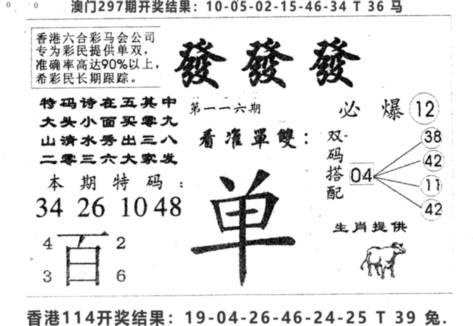 澳门297期开奖结果：10-05-02-15-46-34 T 36 马
香港六合彩马会公司
专为彩民提供单双，
准确率高达90%以上，
希彩民长期跟踪。
發 發 發
特码诗在五其中
大头小面买零九
山清水秀出三八
二零三六大家发
第一一六期
看准單雙：
必 爆 12
双码搭配
04
38
42
11
42
本期特码：
34 26 10 48
单
4 2
百
3 6
生肖提供
香港114开奖结果：19-04-26-46-24-25 T 39 兔.